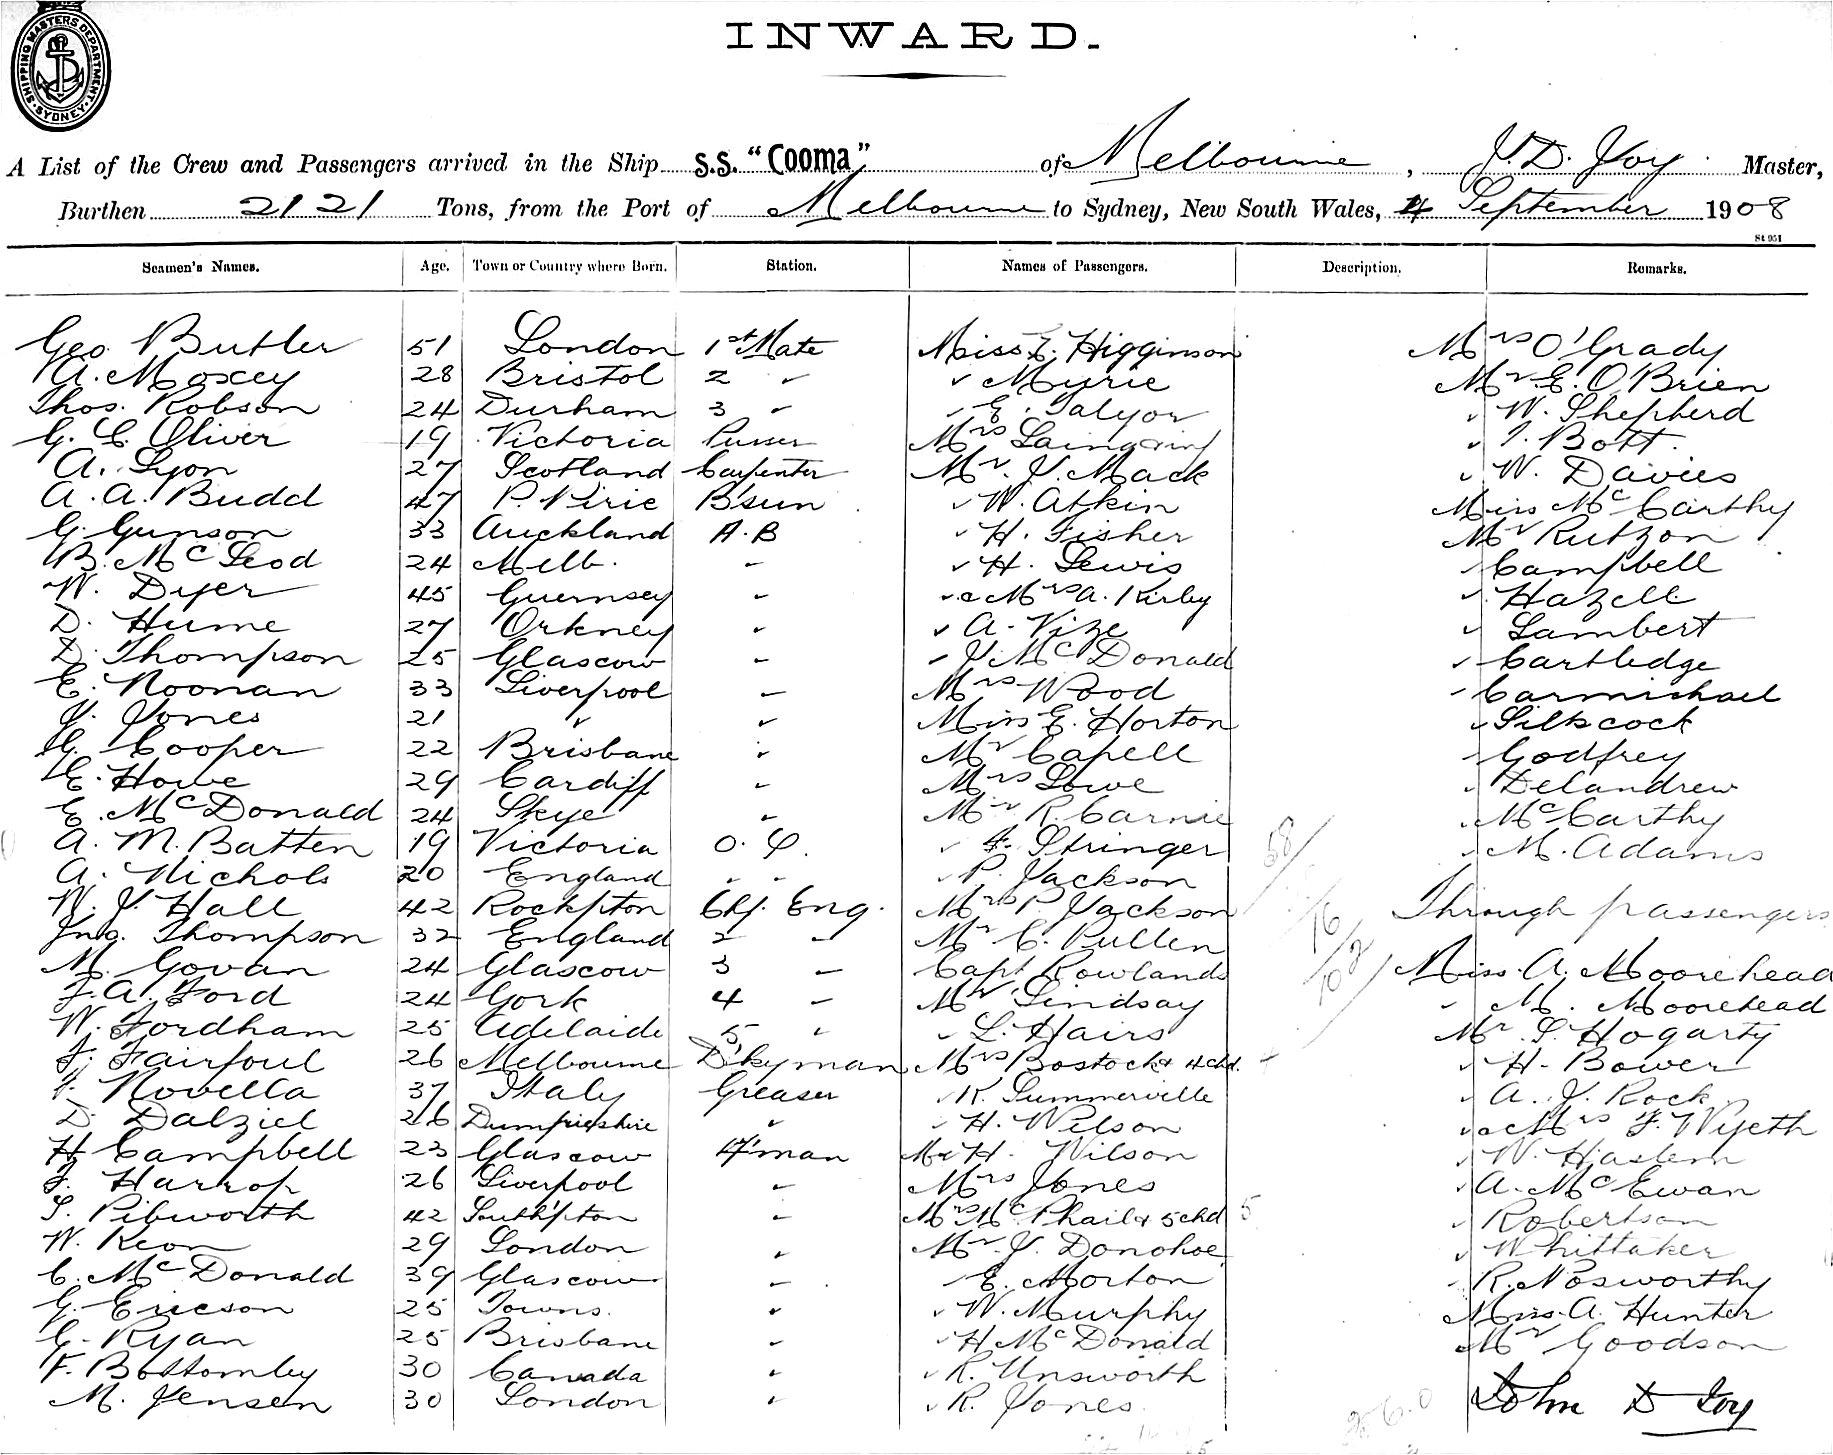 SHIPPING MASTERS DEPARTMENT · SYDNEY ·
INWARD.
A List of the Crew and Passengers arrived in the Ship S.S. "Cooma" of Melbourne, J. D. Joy Master,
Burthen 2121 Tons, from the Port of Melbourne to Sydney, New South Wales, 4 September 1908
St 951
Seamen's Names. Age. Town or Country where Born. Station. Names of Passengers. Description. Remarks.
Geo. Butler 51 London 1st Mate Miss E. Higginson Mrs O'Grady
A. Moxey 28 Bristol 2 " " Myrie Mr E. O'Brien
Thos. Robson 24 Durham 3 " " E. Talyor " W. Shepherd
G. E. Oliver 19 Victoria Purser Mrs " Bott.
A. Lyon 27 Scotland Carpenter Mr. J. Mack " W. Davies
A. A. Budd 47 P. Pirie B'sun " W. Atkin Miss McCarthy
G. Gunson 33 Auckland A.B " H. Fisher Mr Rutzon
B. McLeod 24 Melb. " " H. Lewis " Campbell
W. Dyer 45 Guernsey " " & Mrs A. Kirby " Hazell
D. Hume 27 Orkney " " A. Vize " Lambert
D. Thompson 25 Glascow " " J. McDonald " Cartledge
E. Noonan 33 Liverpool " Mrs Wood " Carmichael
J. Jones 21 " " Miss E. Horton " Silkcock
G. Cooper 22 Brisbane " Mr Capell " Godfrey
E. Howe 29 Cardiff " Mrs Lowe " Delandrew
E. McDonald 24 Skye " Mr R. Carnie " McCarthy
A. M. Batten 19 Victoria O.S. " F. Stringer 58/ " M. Adams
A. Nichols 20 England " " " P. Jackson
W. J. Hall 42 Rockpton Chf. Eng. Mrs P. Jackson 16/ Through passengers
Jno. Thompson 32 England 2 " Mr C. Pullen
M. Govan 24 Glascow 3 " Capt Rowlands 102/ Miss. A. Moorehead
F. A. Ford 24 Cork 4 " Mr Lindsay " M. Moorehead
W. Fordham 25 Adelaide 5 " " L. Hairs Mr. S. Hogarty
J. Fairfoul 26 Melbourne D'kyman Mrs Bostock & 4 chd. 4 " H. Bower
J. Novella 37 Italy Greaser " R. Summerville " A. J. Rock
D. Dalziel 26 Dumfrieshire " " H. Wilson " & Mrs F. Wyeth
H Campbell 23 Glascow F'man Mr H. Wilson " W. Haslem
J. Harrop 26 Liverpool " Mrs Jones " A. McEwan
S. Pibworth 42 South'pton " Mrs McPhail & 5 chd 5 " Robertson
W. Keon 29 London " Mr. J. Donohoe " Whittaker
C. McDonald 39 Glascow " E. Morton " R. Nosworthy
G. Ericson 25 Towns. " " W. Murphy Miss. A. Hunter
G. Ryan 25 Brisbane " " H McDonald Mr Goodson
F. Bottomley 30 Canada " " R. Unsworth
M. Jensen 30 London " " R. Jones John D Joy